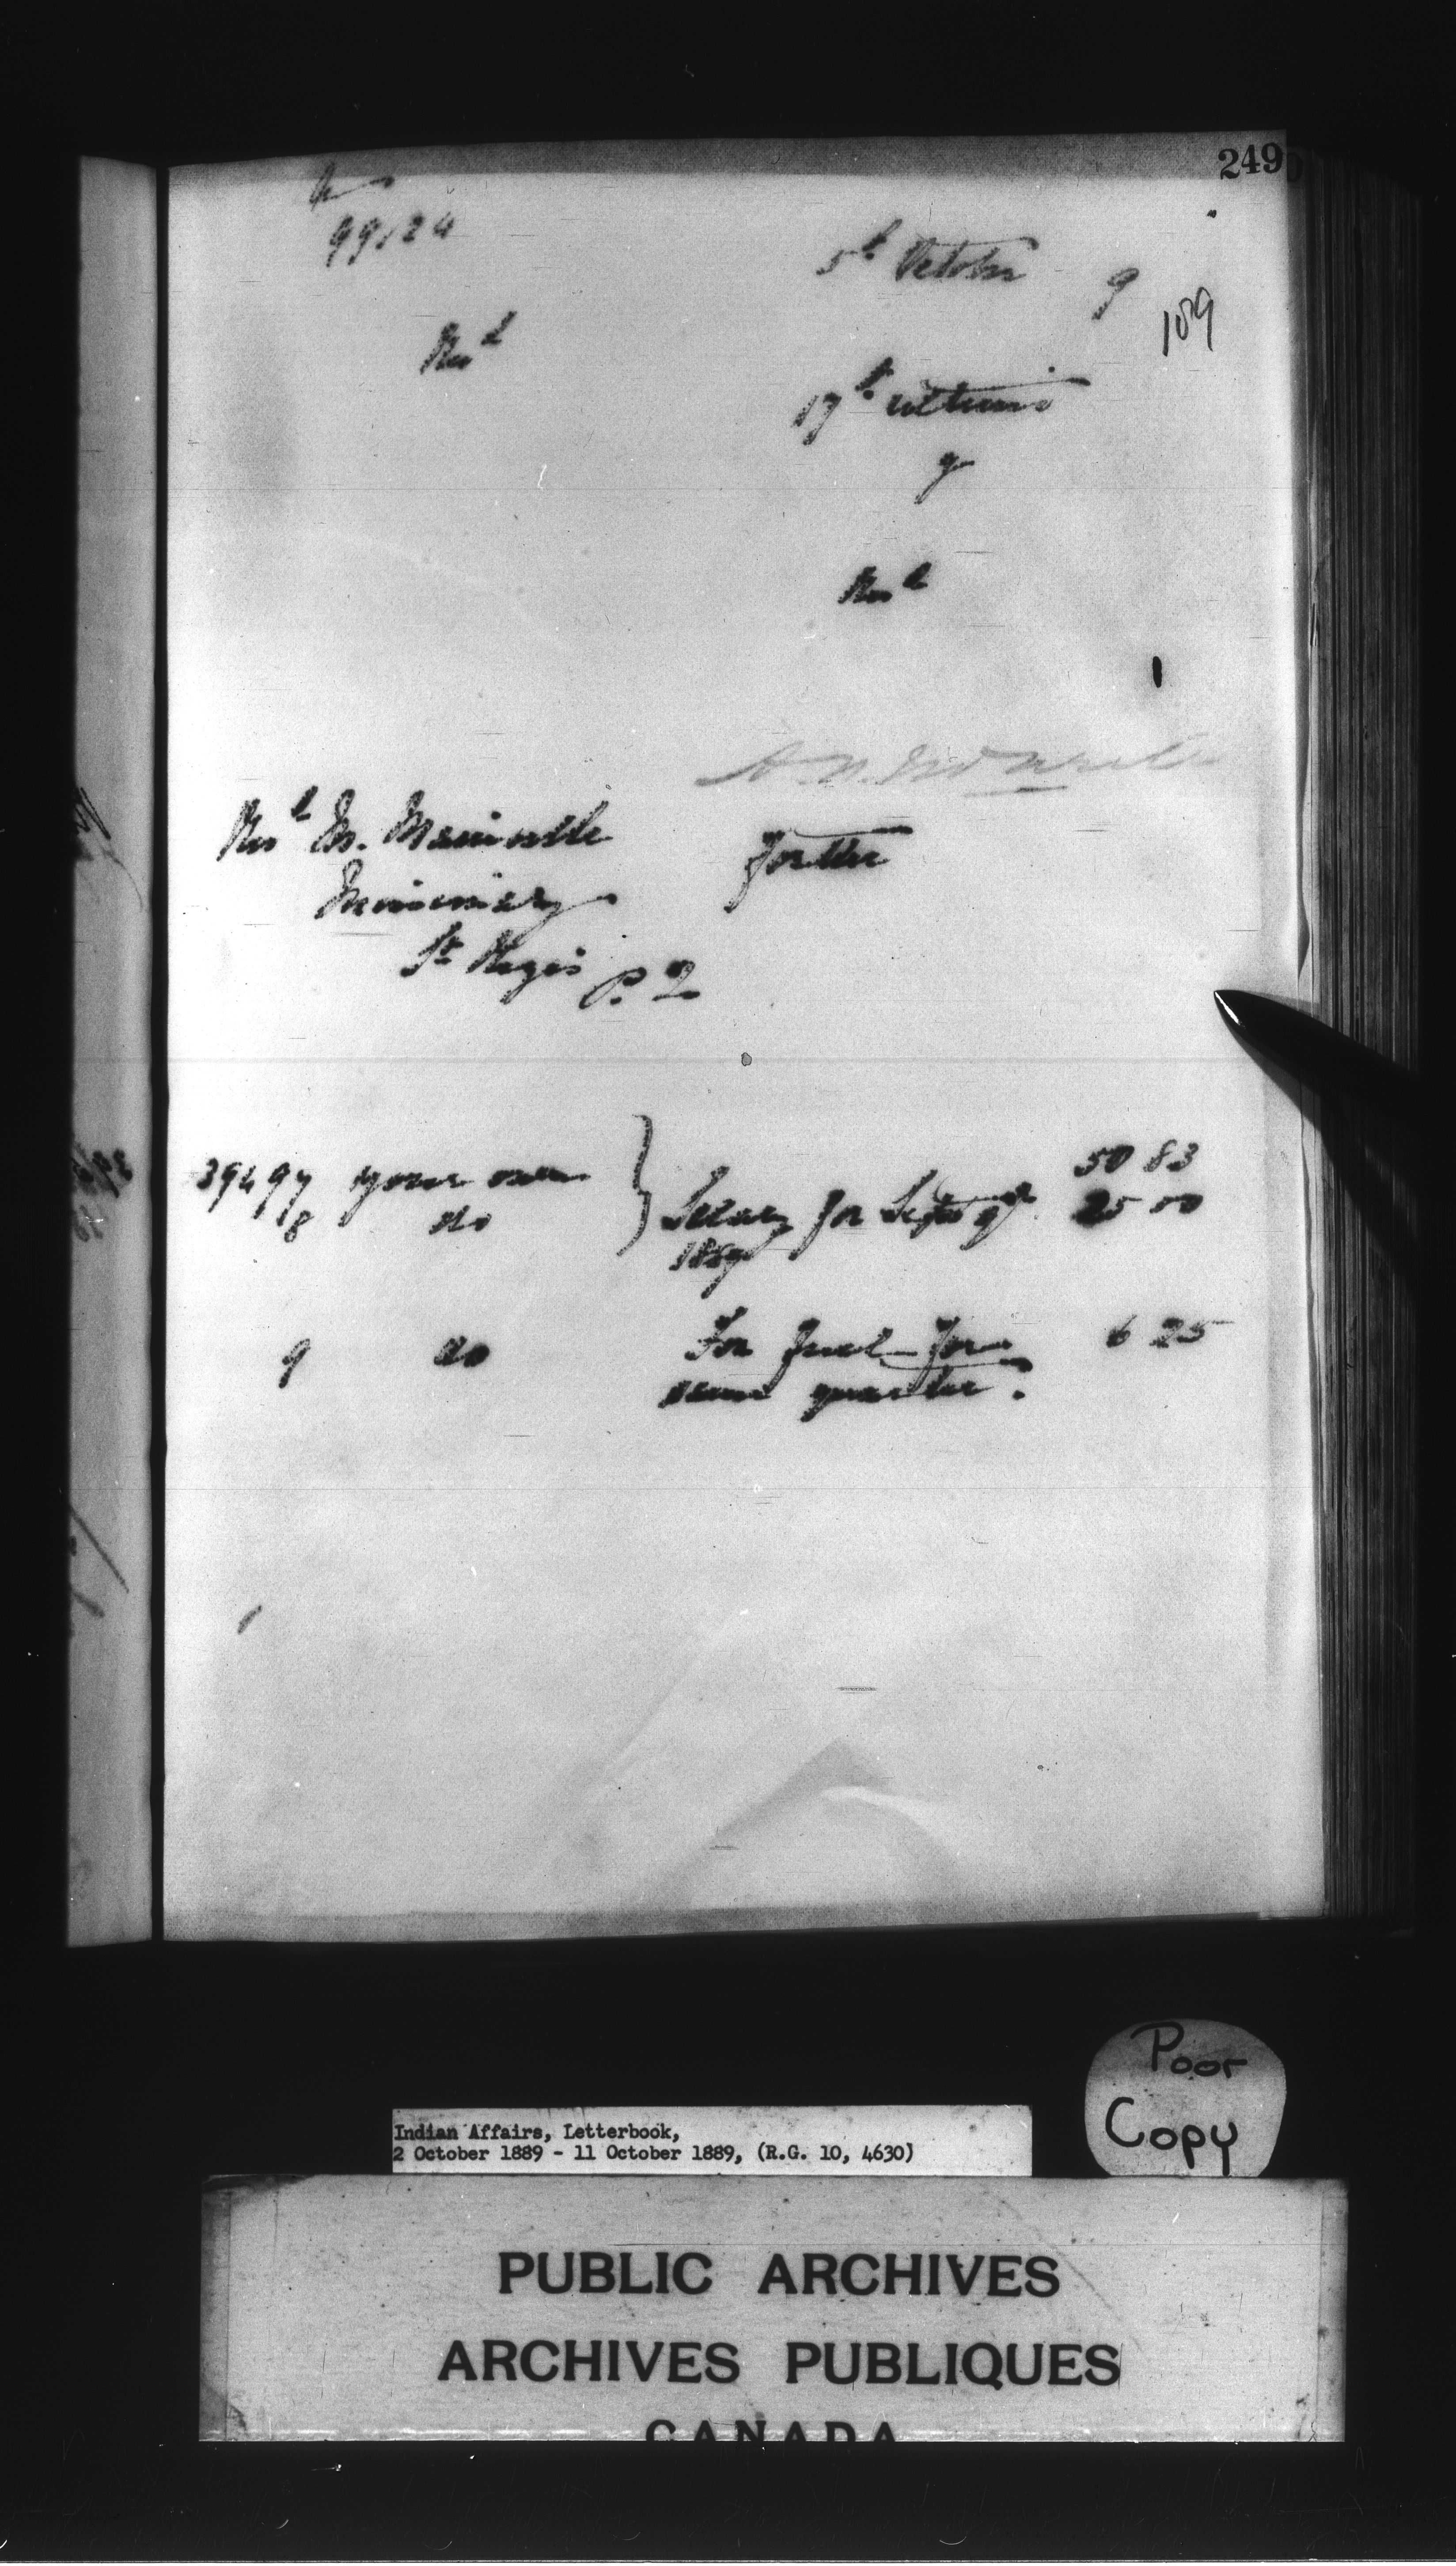 249
99124
5th October 9
109
Revd
17th ultimo
9
Revd
Revd M. Mainville
Missionary
St Regis P. Q
for the
39497 your own 50 83
8 do Salary for Septr qr 25 00
1889
9 do For fuel for 6 25
same quarter.
Poor
Copy
Indian Affairs, Letterbook,
2 October 1889 - 11 October 1889, (R.G. 10, 4630)
PUBLIC ARCHIVES
ARCHIVES PUBLIQUES
CANADA